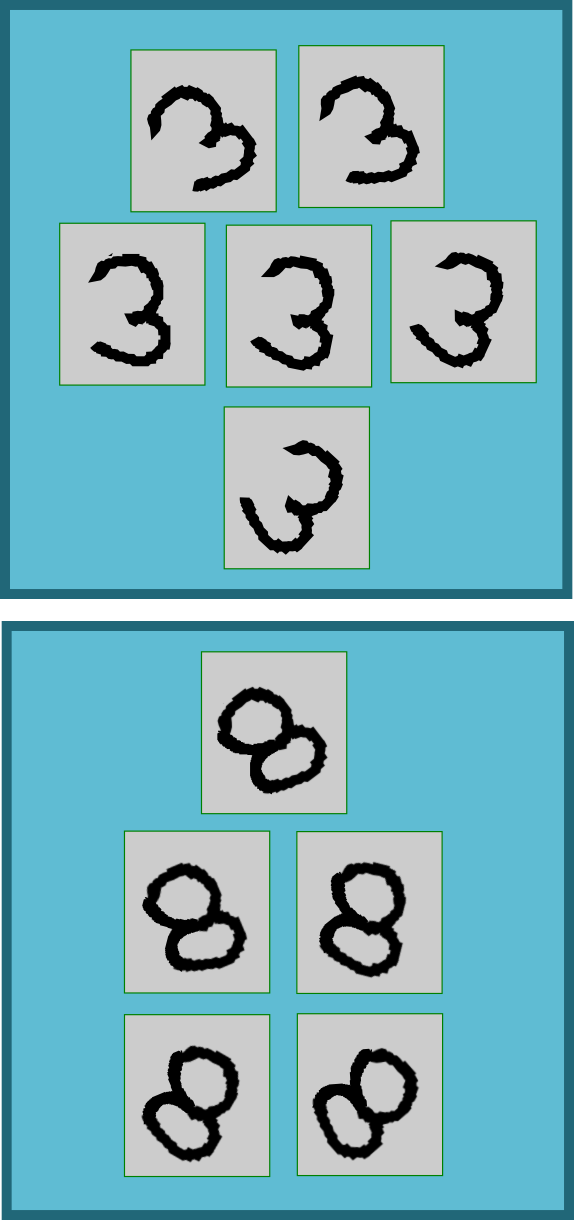 3 3
3 3 3
3
8
8 8
8 8